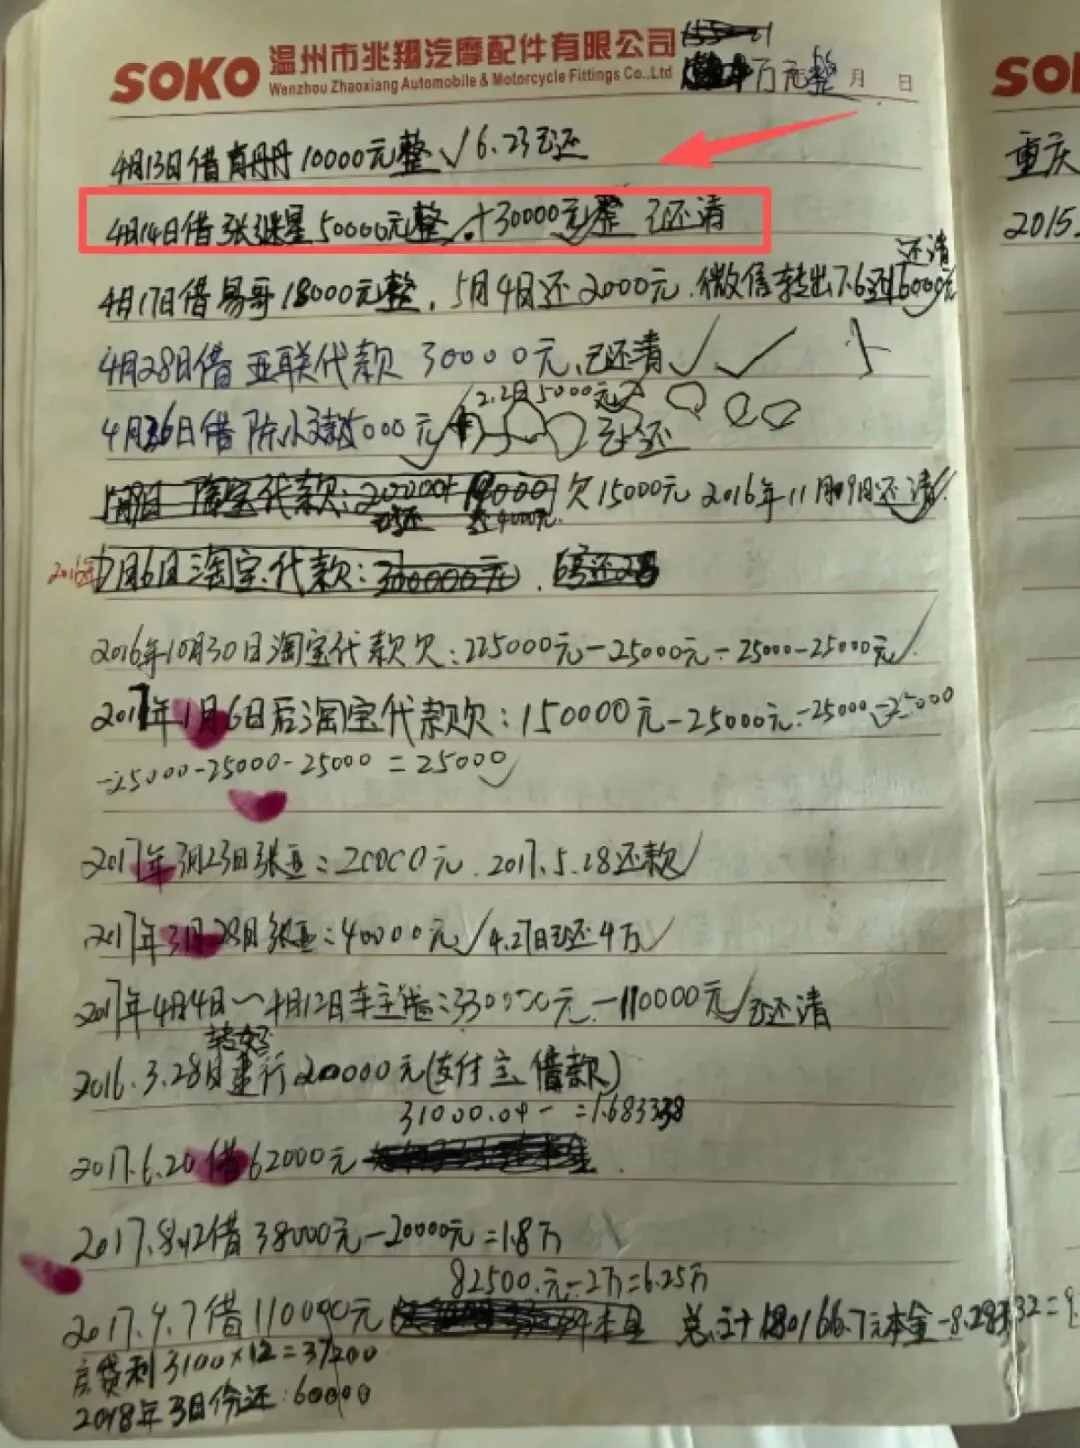 SOKO 温州市兆翔汽摩配件有限公司
Wenzhou Zhaoxiang Automobile & Motorcycle Fittings Co.,Ltd
万元整 月 日
4月13日借肖丹丹10000元整 √ 6.23已还
4月14日借张继星50000元整 +30000元整 已还清
还清
4月17日借易哥18000元整，5月4日还2000元.微信转出7.6还16000元
4月28日借亚联代款 30000元,已还清 √ √
2.2日5000元
4月26日借陈小 5000元 已还
淘宝代款:200000+ 欠15000元 2016年11月9日还清
已还 还4000元
2016年 7月6日淘宝代款:300000元
2016年10月30日淘宝代款欠:225000元-25000元-25000-25000元√
2017年1月6日后淘宝代款欠:150000元-25000元-25000-25000
-25000-25000-25000=25000√
2017年3月23日张亚:20000元.2017.5.28还款√
2017年3月28日张亚:40000元√4.27日已还4万√
2017年4月4日~4月12日车主借:330000元-110000元√已还清
转好
2016.3.28日建行200000元(支付宝借款)
31000.04- =1.683338
2017.6.20借62000元
2017.8.12借38000元-20000元=1.8万
82500.元-2万=6.25万
2017.9.7借110000元 本金 总计180166.7元本金-8.28332=9.
房贷利3100×12=37200
2018年3月份还:60000
SO
重庆
2015.